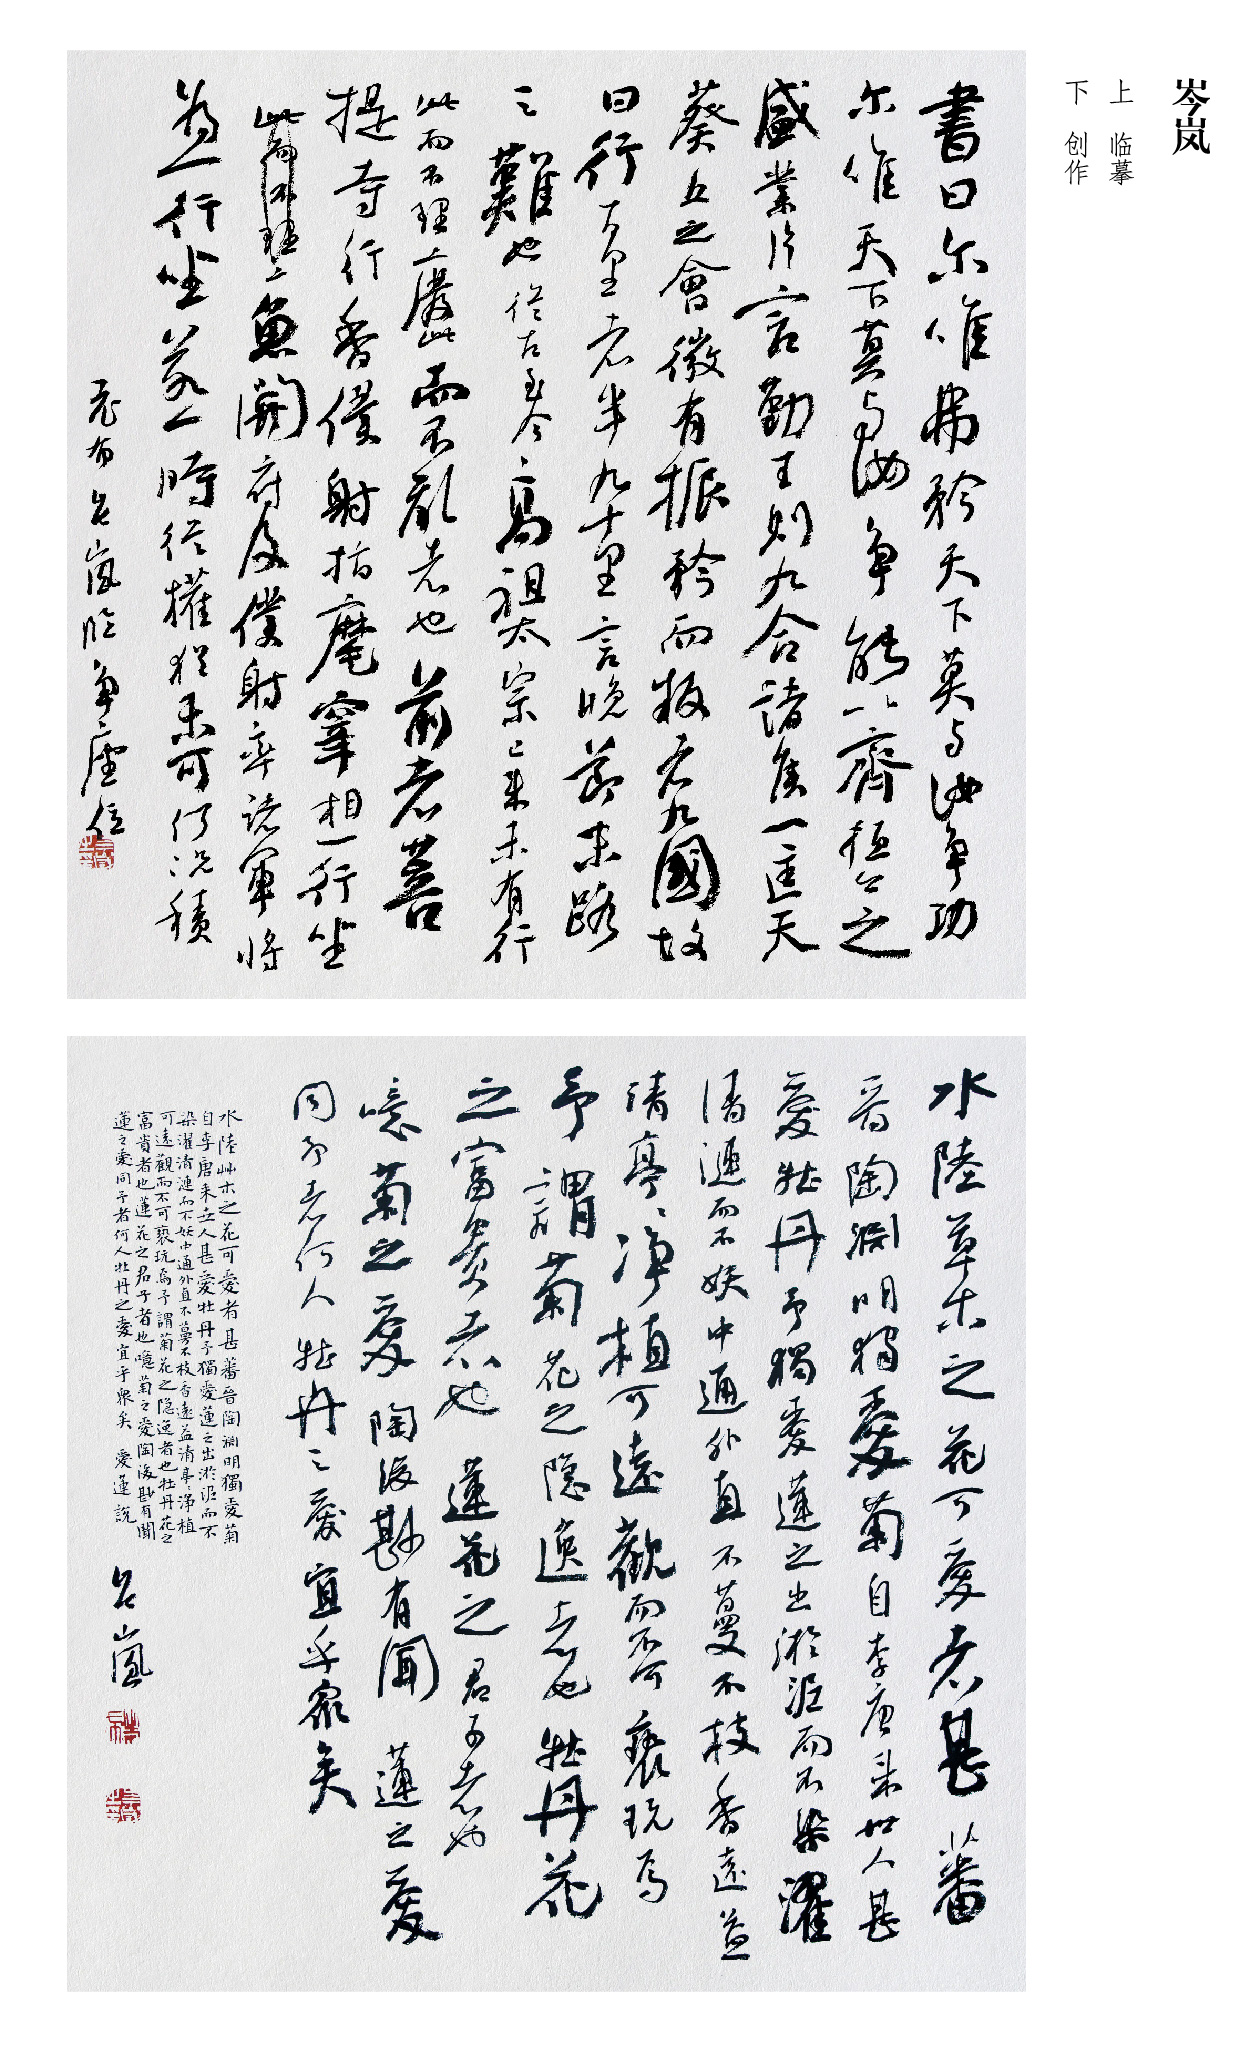 岑岚
上 临摹
下 创作
書曰尔唯弗矜天下莫与汝争功
尔唯天下莫与汝争能以齊桓公之
盛業片言勤王则九合諸侯一匡天
葵丘之會微有振矜而叛者九國故
曰行百里者半九十里言晚节末路
之難也從古至今高祖太宗已来未有行
此而不理廢此而不亂者也前者菩
提寺行香僕射指麾宰相一行坐
魚開府及僕射率諸軍将
為一行坐若一時從權猶未可何况積
岑嵐臨争座位
水陸草木之花可愛者甚蕃
晋陶渊明獨愛菊自李唐来世人甚
愛牡丹予獨愛蓮之出淤泥而不染濯
清漣而不妖中通外直不蔓不枝香遠益
清亭亭净植可遠觀而不可褻玩焉
予謂菊花之隐逸者也牡丹花
之富貴者也蓮花之君子者也
噫菊之愛陶後尠有聞蓮之愛
同予者何人牡丹之愛宜乎衆矣
水陸艸木之花可愛者甚蕃晋陶渊明獨愛菊
自李唐来世人甚愛牡丹予獨愛蓮之出淤泥而不
染濯清漣而不妖中通外直不蔓不枝香遠益清亭亭净植
可遠觀而不可褻玩焉予謂菊花之隐逸者也牡丹花之
富貴者也蓮花之君子者也噫菊之愛陶後尠有聞
蓮之愛同予者何人牡丹之愛宜乎衆矣 愛蓮說
岑嵐